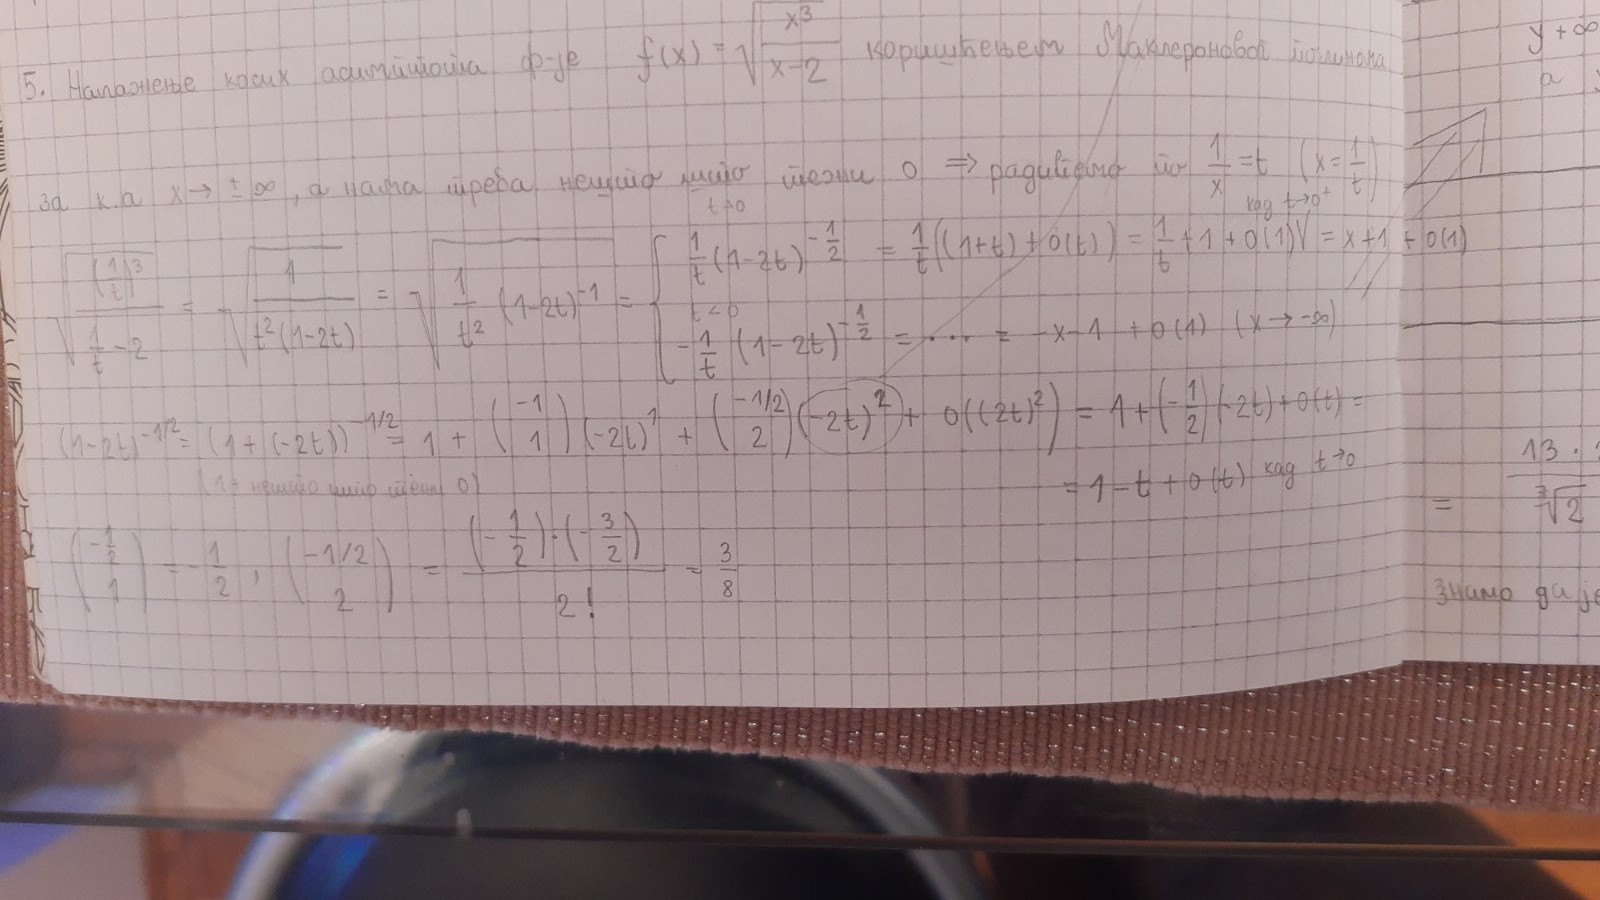 5. Налажење косих асимптота ф-је f(x) = √(x³/(x-2)) коришћењем Маклеронових полинома
за к.а x → ±∞, а нама треба нешто што тежи 0 ⇒ радићемо по 1/x = t (x = 1/t)
t>0 кад t→0⁺
√((1/t)³/(1/t - 2)) = √(1/(t²(1-2t))) = √(1/t² (1-2t)⁻¹) = { 1/t (1-2t)^(-1/2) = 1/t((1+t) + o(t)) = 1/t + 1 + o(1) √ = x+1 + o(1)
t<0
-1/t (1-2t)^(-1/2) = .... = -x-1 + o(1) (x→-∞)
(1-2t)^(-1/2) = (1+(-2t))^(-1/2) = 1 + (-1 1)(-2t)¹ + (-1/2 2)(-2t)² + o((2t)²) = 1 + (-1/2)(-2t) + o(t) =
(1+ нешто што тежи 0) = 1-t + o(t) кад t→0
(-1/2 1) = -1/2, (-1/2 2) = ((-1/2)·(-3/2))/2! = 3/8
y + ∞
а
13 ·
= ⁷√2
Знамо да је